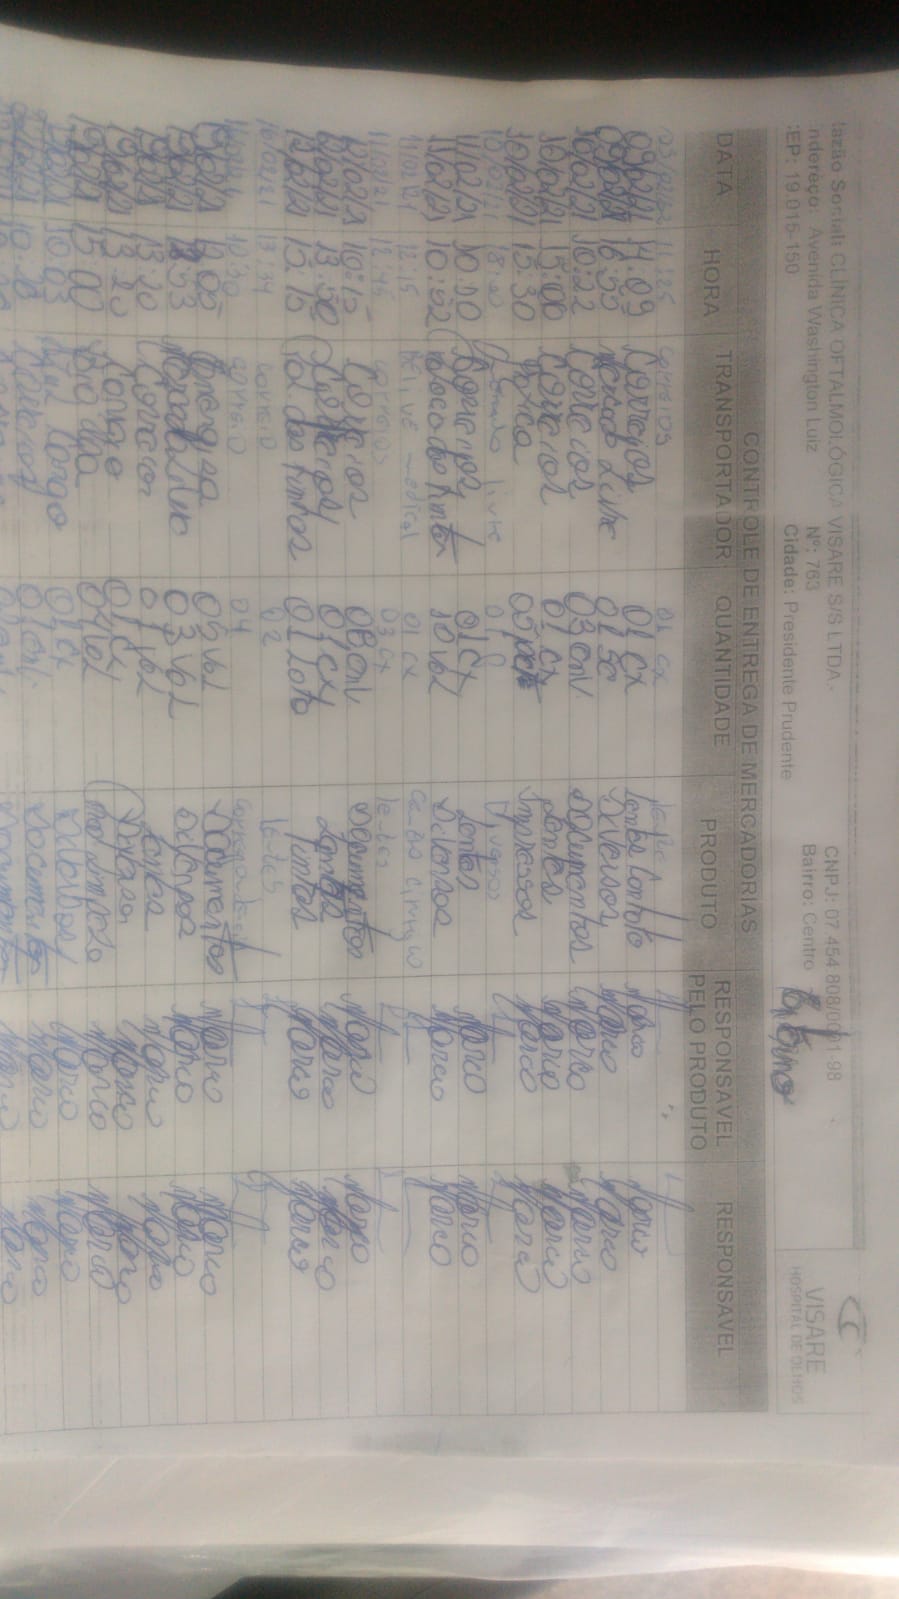 Razão Social: CLÍNICA OFTALMOLÓGICA VISARE S/S LTDA.- CNPJ: 07.454.808/0001-98
Endereço: Avenida Washington Luiz Nº: 763 Bairro: Centro
CEP: 19.015-150 Cidade: Presidente Prudente
VISARE
HOSPITAL DE OLHOS
CONTROLE DE ENTREGA DE MERCADORIAS
DATA HORA TRANSPORTADOR QUANTIDADE PRODUTO RESPONSAVEL PELO PRODUTO RESPONSAVEL
11:25 correios 01 cx
09/02/21 14:09 Correios 01 Cx Lentes Contato Marco Marco
09/02/21 16:55 Mercado Livre 01 Sc Diversos Marco Marco
10/02/21 10:22 Correios 03 env. Documentos Marco Marco
10/02/21 15:00 Correios 01 Cx Lentes Marco Marco
10/02/21 15:30 05 pct Impressos Marco Marco
10/02/21 livre 01 Diversos
11/02/21 10:10 Correios 01 Cx Lentes Marco Marco
11/02/21 10:52 10 Vol Diversos Marco Marco
11/02/21 12:15 medical 01 cx
11/02/21 12:45 correios 03 cx lentes
12/02/21 10:15 Correios 08 env. Documentos Marco Marco
12/02/21 13:50 Correios 01 Cx Lentes Marco Marco
12/02/21 15:15 das tintas 01 Tintas Marco Marco
16/02/21 13:34 correio 02 lentes
10:30 correio 04
19/02/21 12:05 Energisa 05 Vol Documentos Marco Marco
19/02/21 Mercado Livre 03 Vol Diversos Marco Marco
13:20 Correios 01 Vol Lentes Marco Marco
13:20 Correio 01 Cx Marco Marco
15:00 04 Vol Limpeza Marco Marco
10:03 Azul Cargo 01 Cx Diversos Marco Marco
Correios 01 env. Documentos Marco Marco
Documentos Marco Marco